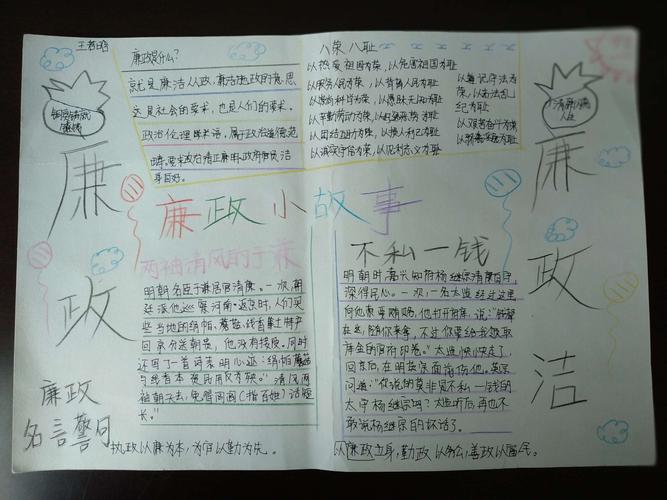 王
廉政是什么?
就是廉洁从政,廉洁施政的意思
这是社会的要求,也是人们的要求。
政治伦理学术语,属于政治道德范
畴,要求政治清正廉明,政府官员洁
身自好。
八荣八耻
以热爱祖国为荣,以危害祖国为耻
以服务人民为荣,以背离人民为耻
以崇尚科学为荣,以愚昧无知为耻
以辛勤劳动为荣,以好逸恶劳为耻
以团结互助为荣,以损人利己为耻
以诚实守信为荣,以见利忘义为耻
以遵纪守法为
荣,以违法乱
纪为耻
以艰苦奋斗为荣
以骄奢淫逸为耻
廉政
廉政洁
廉政小故事
两袖清风的于谦
明朝名臣于谦居官清廉。一次,朝
廷派他巡察河南。返京时,人们买
些当地的绢帕、蘑菇、线香等土特产
回京分送朝贵,他没有接受。同时
还写了一首诗表明心迹:绢帕蘑菇
与线香本资民用反为殃。清风两
袖朝天去,免得阎阎(指百姓)话短
长。"
不私一钱
明朝时嘉兴知府杨继宗清廉自守,
深得民心。一次,一名太监经过这里
向他索要贿赂,他打开府库,说:"钱都
在这,随你来拿,不过你要给我领取
库金的官府印卷。"太监怏怏走了,
回京后,在明英宗面前诋他,英宗
问道:"你说的莫非是不私一钱的
太守杨继宗吗?"太监听后再也不
敢说杨继宗的坏话了。
廉政
名言警句
执政以廉为本,为官以勤为先。
以廉政立身,勤政以务公,善政以富民。